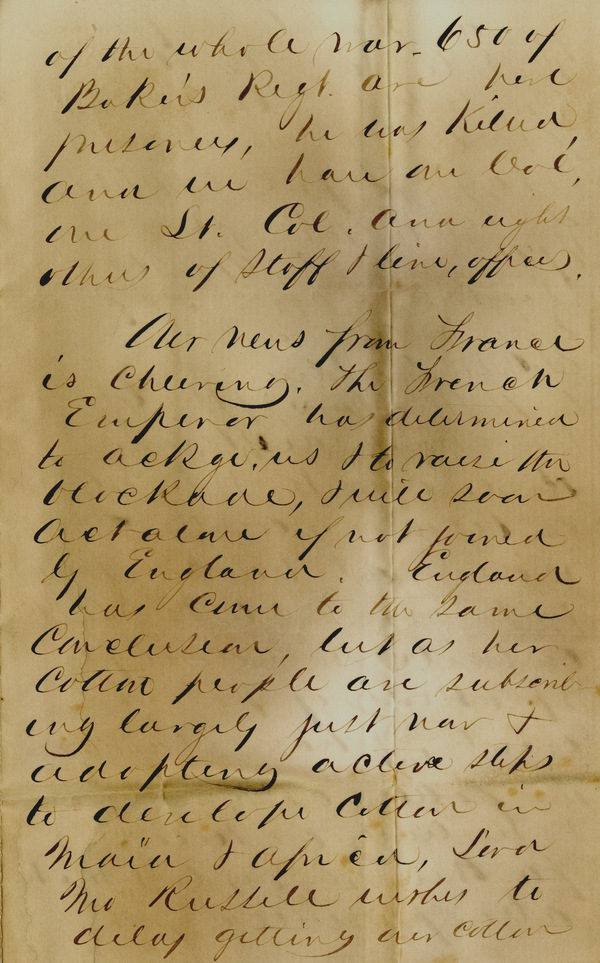 of the whole war. 650 of
Baker's Regt. are here
prisoners, he was Killed,
and we have one Col,
one Lt. Col. and eight
others of Staff & line, offices.
Our news from France
is Cheering. The French
Emperor has determined
to ackge. us & to raise the
blockade, & will soon
Act alone if not joined
by England. England
has come to the same
Conclusion, but as her
Cotton people are subscrib
ing largely just now &
adopting active steps
to develope Cotton in
& Africa, Lord
Jno Russell wishes to
delay getting our cotton